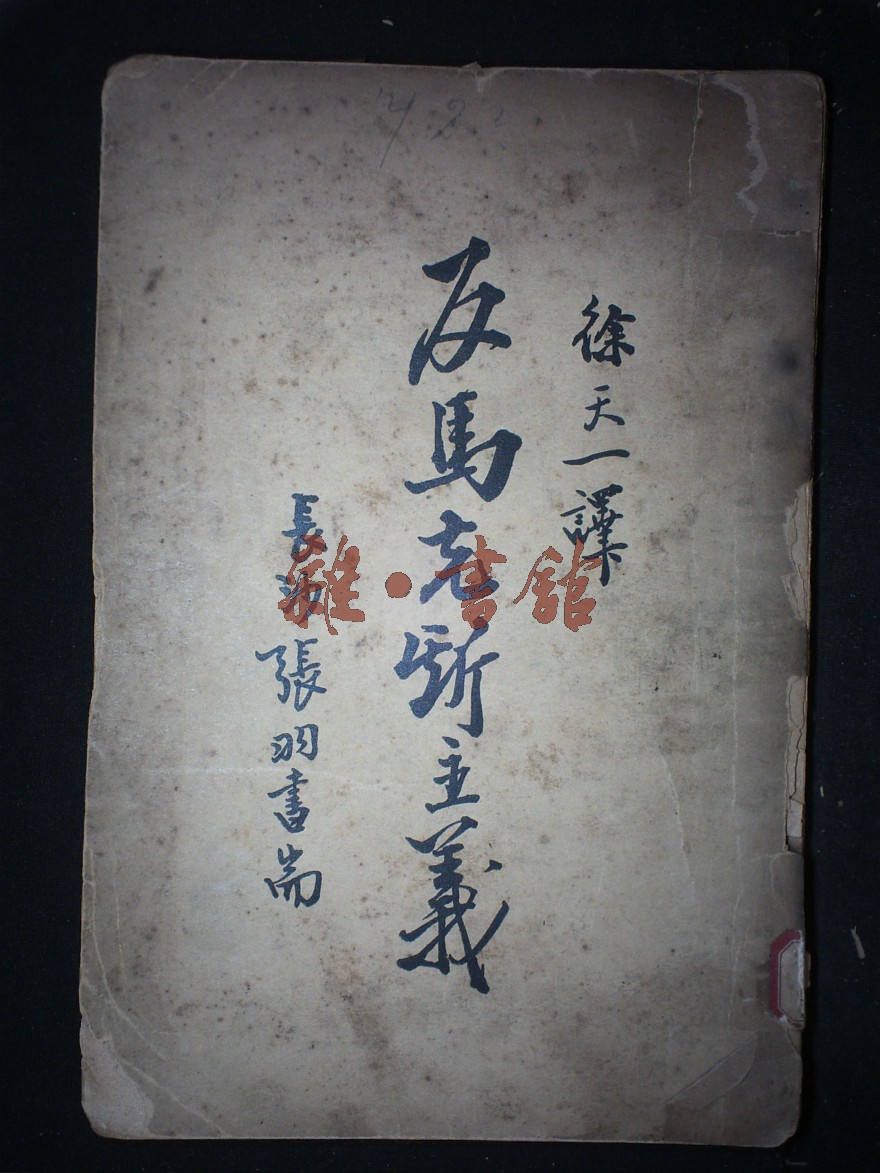 徐天一譯
反馬克斯主義
長沙張羽書耑
雜·書館